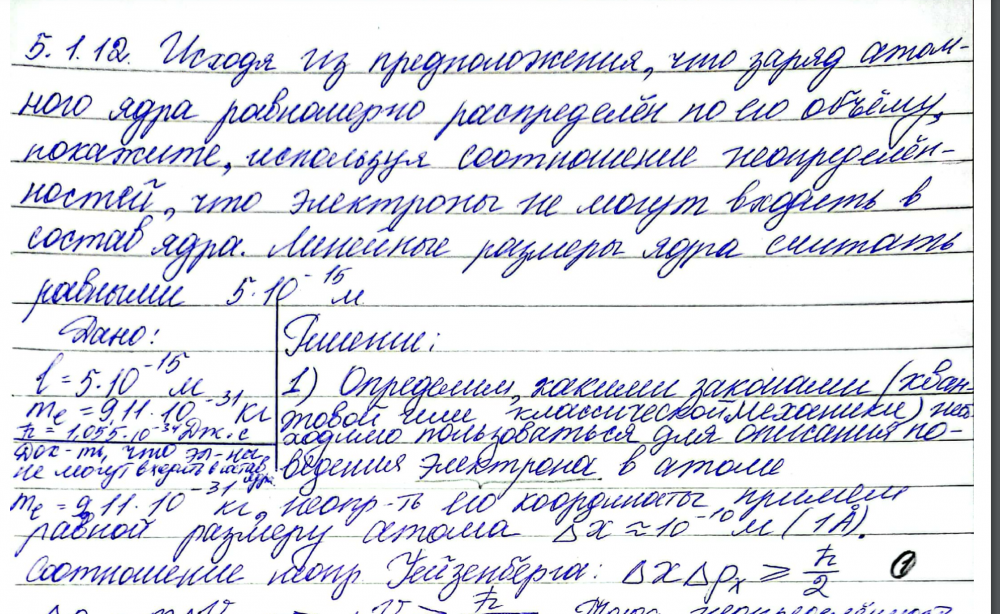 5.1.12. Исходя из предположения, что заряд атом-
ного ядра равномерно распределён по его объёму,
покажите, используя соотношение неопределён-
ностей, что электроны не могут входить в
состав ядра. Линейные размеры ядра считать
равными 5·10⁻¹⁵ м
Дано:
l = 5·10⁻¹⁵ м
mₑ = 9,11·10⁻³¹ кг
ħ = 1,055·10⁻³⁴ Дж·с
Док-ть, что эл-ны
не могут входить в состав
ядра
Решение:
1) Определим, какими законами (кван-
товой или классической механики) необ-
ходимо пользоваться для описания по-
ведения электрона в атоме
mₑ = 9,11·10⁻³¹ кг, неопр-ть его координаты примем
равной размеру атома Δx ≈ 10⁻¹⁰ м (1Å).
Соотношение неопр Гейзенберга: Δx Δpₓ ≥ ħ/2 ①